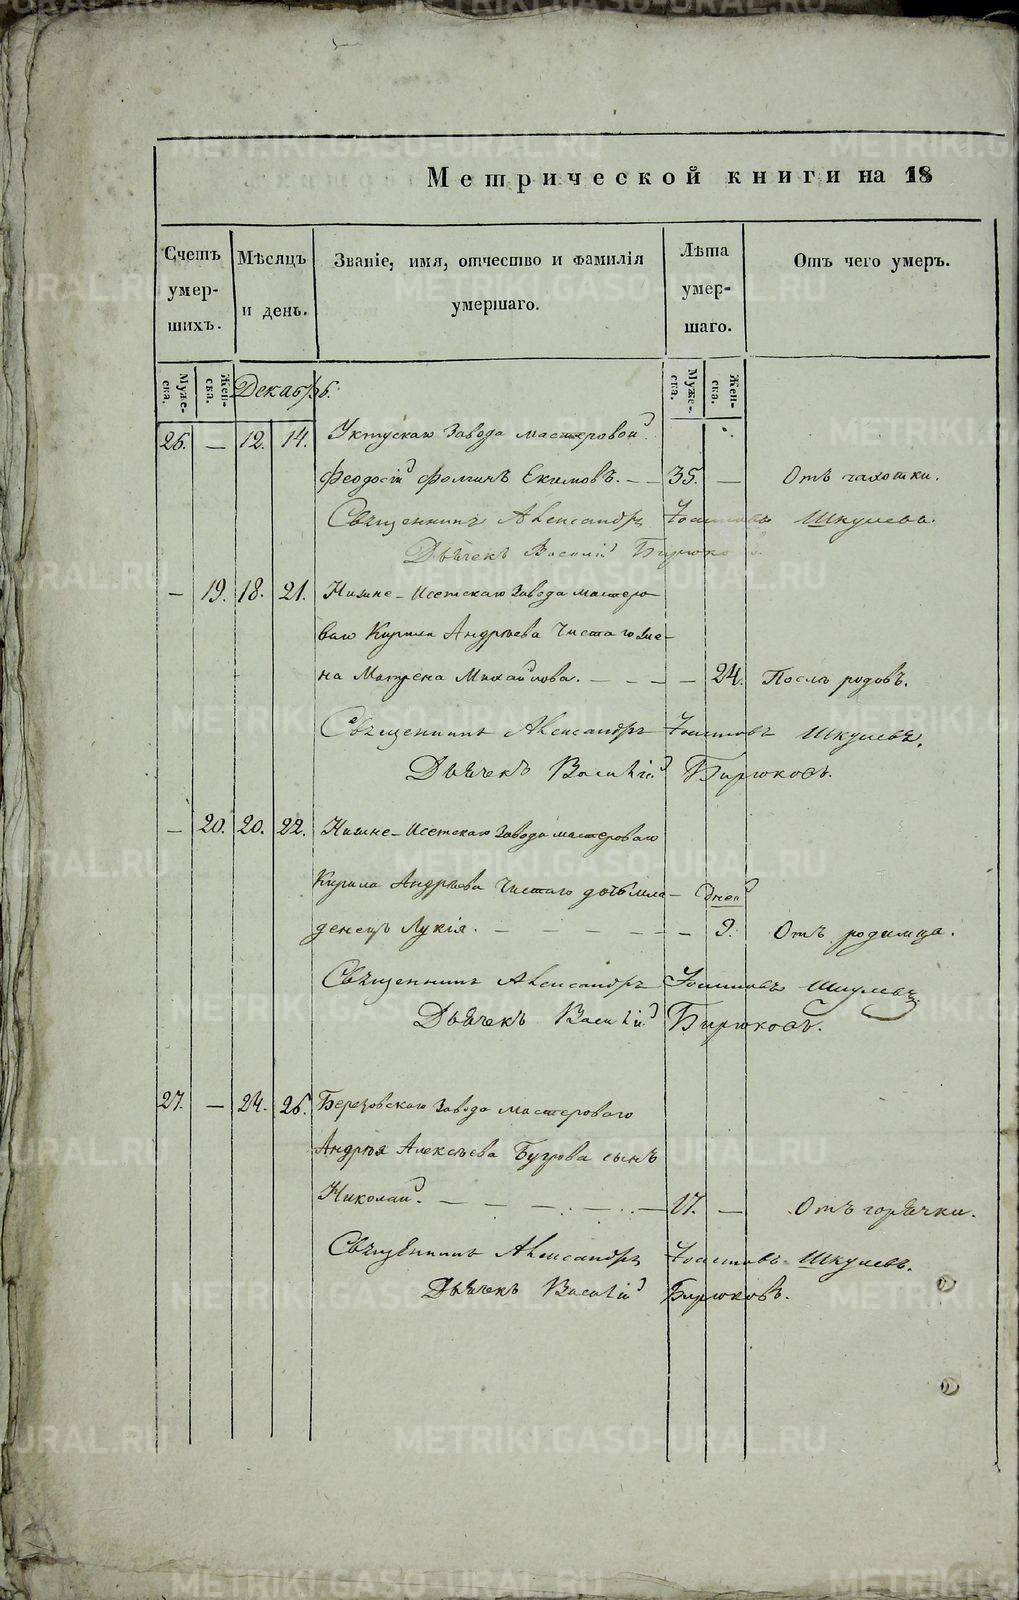 Метрической книги на 18
Счетъ умер- шихъ.
Мѣсяцъ и день.
Званіе, имя, отчество и фамилія умершаго.
Лѣта умер- шаго.
Отъ чего умеръ.
Муже- ска.
Жен- ска.
Декабрь.
Муже- ска.
Жен- ска.
26. — 12. 14. Уктускаго Завода мастеровой
Феодосій Фоминъ Екимовъ. — — 35. — Отъ чахотки.
Священникъ Александръ Іоанновъ Шкулевъ.
Дьячекъ Василій Бирюковъ.
— 19. 18. 21. Нижне-Исетскаго Завода мастеро-
ваго Кирила Андрѣева Чистаго же-
на Матрена Михайлова. — — — — 24. Послѣ родовъ.
Священникъ Александръ Іоанновъ Шкулевъ.
Дьячекъ Василій Бирюковъ.
— 20. 20. 22. Нижне-Исетскаго Завода мастероваго
Кирила Андрѣева Чистаго дочь мла- дней
денецъ Лукія. — — — — — — 2. Отъ родимца.
Священникъ Александръ Іоанновъ Шкулевъ.
Дьячекъ Василій Бирюковъ.
27. — 24. 26. Березовскаго Завода мастероваго
Андрея Алексѣева Бугрова сынъ
Николай. — — — — — 17. — Отъ горячки.
Священникъ Александръ Іоанновъ Шкулевъ.
Дьячекъ Василій Бирюковъ.
METRIKI.GASO-URAL.RU